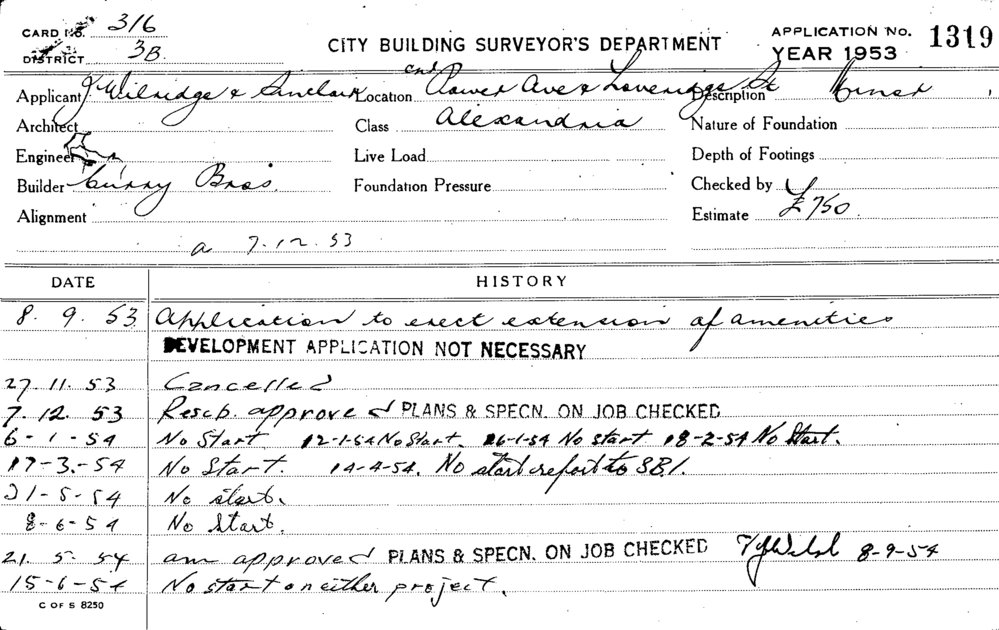 CARD No. 316
DISTRICT 3B
CITY BUILDING SURVEYOR'S DEPARTMENT
APPLICATION No. 1319
YEAR 1953
Applicant J Wilridge & Sinclair
Location cnr Power Ave & Loveridge St
Description Minor
Architect
Class Alexandria
Nature of Foundation
Engineer
Live Load
Depth of Footings
Builder Curry Bros.
Foundation Pressure
Checked by
Alignment
Estimate £750.
a 7.12.53
DATE HISTORY
8. 9. 53 Application to erect extension of amenities
DEVELOPMENT APPLICATION NOT NECESSARY
27. 11. 53 Cancelled
7. 12. 53 Resub. approved PLANS & SPECN. ON JOB CHECKED
6-1-54 No Start 12-1-54 No Start. 26-1-54 No start 18-2-54 No Start.
17-3-54 No Start. 14-4-54. No start report to SB1.
21-5-54 No start.
8-6-54 No Start.
21. 5. 54 am approved PLANS & SPECN. ON JOB CHECKED 8-9-54
15-6-54 No start on either project.
C OF S 8250